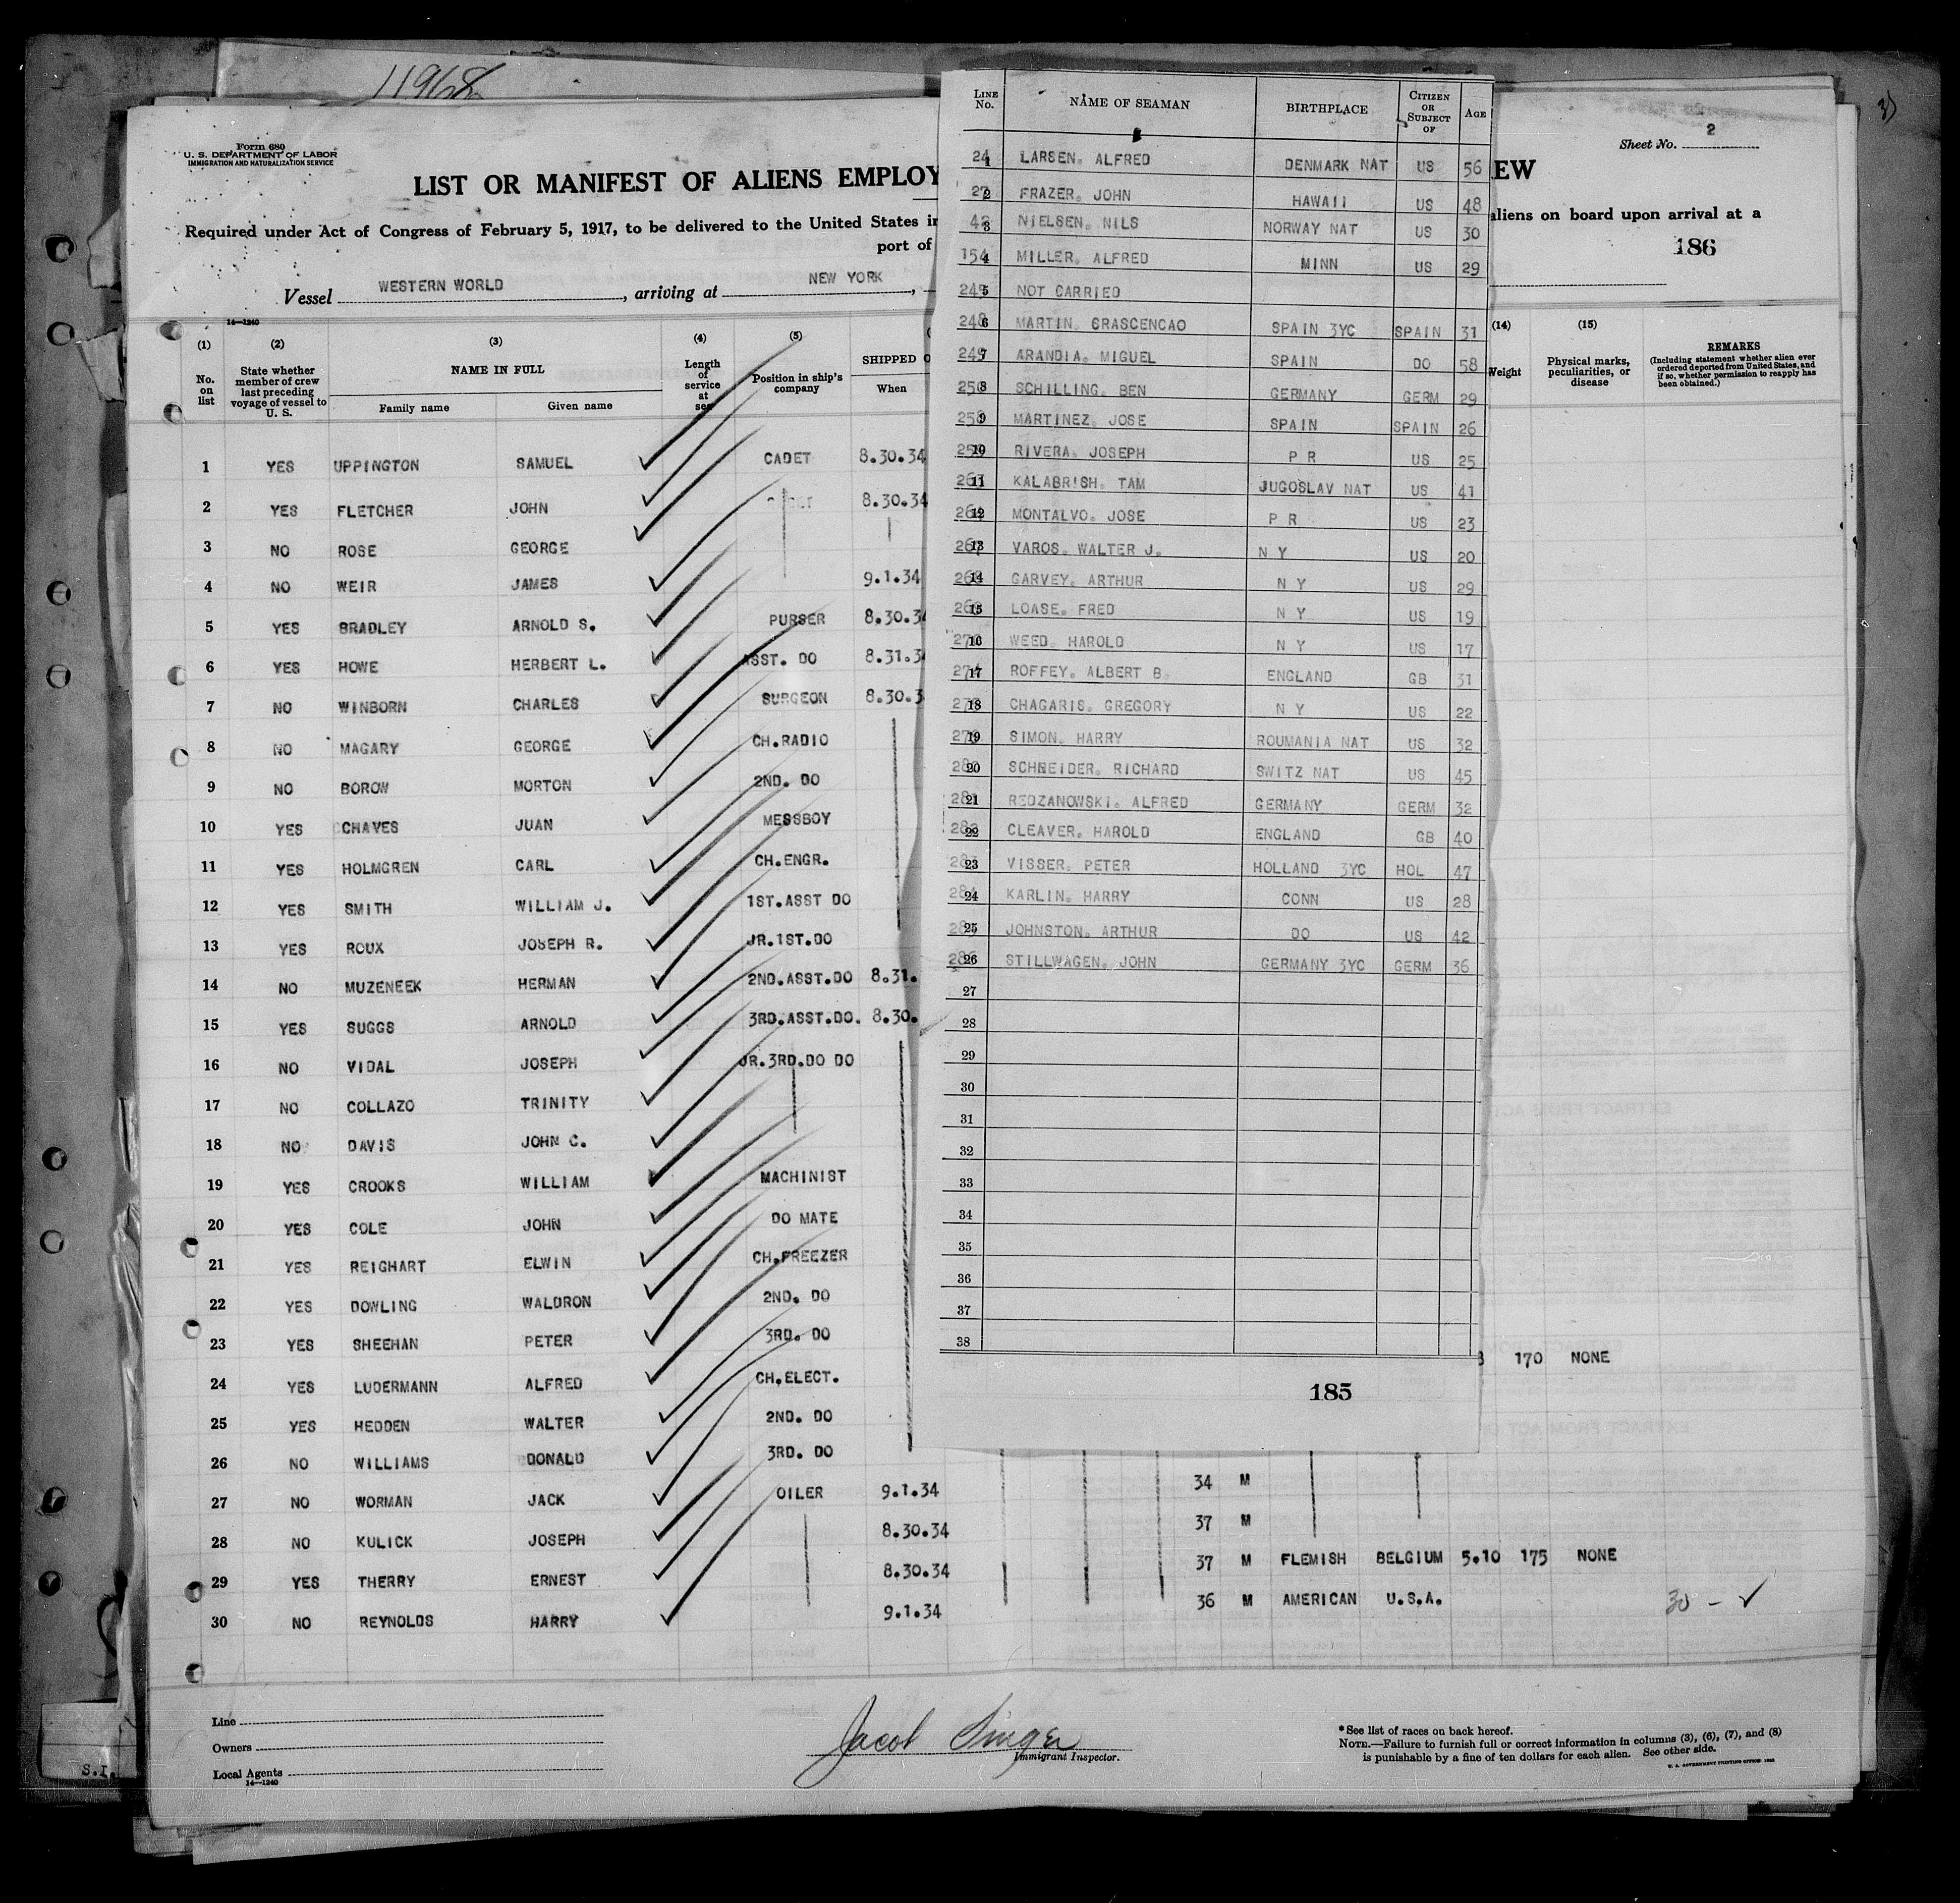 11968
Form 680
U. S. DEPARTMENT OF LABOR
IMMIGRATION AND NATURALIZATION SERVICE
LIST OR MANIFEST OF ALIENS EMPLOY
Required under Act of Congress of February 5, 1917, to be delivered to the United States in
port of
Vessel WESTERN WORLD, arriving at NEW YORK,
14—1240
(1) (2) (3) (4) (5)
No. on list
State whether member of crew last preceding voyage of vessel to U. S.
NAME IN FULL
Family name Given name
Length of service at sea
Position in ship's company
SHIPPED O
When
1 YES UPPINGTON SAMUEL CADET 8.30.34
2 YES FLETCHER JOHN 8.30.34
3 NO ROSE GEORGE
4 NO WEIR JAMES 9.1.34
5 YES BRADLEY ARNOLD S. PURSER 8.30.34
6 YES HOWE HERBERT L. ASST. DO 8.31.3
7 NO WINBORN CHARLES SURGEON 8.30.3
8 NO MAGARY GEORGE CH.RADIO
9 NO BOROW MORTON 2ND. DO
10 YES CHAVES JUAN MESSBOY
11 YES HOLMGREN CARL CH.ENGR.
12 YES SMITH WILLIAM J. 1ST.ASST DO
13 YES ROUX JOSEPH R. JR.1ST.DO
14 NO MUZENEEK HERMAN 2ND.ASST.DO 8.31.
15 YES SUGGS ARNOLD 3RD.ASST.DO. 8.30.
16 NO VIDAL JOSEPH JR.3RD.DO DO
17 NO COLLAZO TRINITY
18 NO DAVIS JOHN C.
19 YES CROOKS WILLIAM MACHINIST
20 YES COLE JOHN DO MATE
21 YES REIGHART ELWIN CH.FREEZER
22 YES DOWLING WALDRON 2ND. DO
23 YES SHEEHAN PETER 3RD. DO
24 YES LUDERMANN ALFRED CH.ELECT.
25 YES HEDDEN WALTER 2ND. DO
26 NO WILLIAMS DONALD 3RD. DO
27 NO WORMAN JACK OILER 9.1.34 34 M
28 NO KULICK JOSEPH 8.30.34 37 M
29 YES THERRY ERNEST 8.30.34 37 M FLEMISH BELGIUM 5.10 175 NONE
30 NO REYNOLDS HARRY 9.1.34 36 M AMERICAN U.S.A. 30 - ✓
Line
Owners
Local Agents
14—1240
Jacob Singer
Immigrant Inspector.
*See list of races on back hereof.
NOTE.—Failure to furnish full or correct information in columns (3), (6), (7), and (8)
is punishable by a fine of ten dollars for each alien. See other side.
U. S. GOVERNMENT PRINTING OFFICE:
S.I.
LINE No. NAME OF SEAMAN BIRTHPLACE CITIZEN OR SUBJECT OF AGE
1 LARSEN. ALFRED DENMARK NAT US 56
2 FRAZER. JOHN HAWAII US 48
3 NIELSEN. NILS NORWAY NAT US 30
4 MILLER. ALFRED MINN US 29
5 NOT CARRIED
6 MARTIN. GRASCENCAO SPAIN 3YC SPAIN 31
7 ARANDIA. MIGUEL SPAIN DO 58
8 SCHILLING. BEN GERMANY GERM 29
9 MARTINEZ. JOSE SPAIN SPAIN 26
10 RIVERA. JOSEPH P R US 25
11 KALABRISH. TAM JUGOSLAV NAT US 41
12 MONTALVO. JOSE P R US 23
13 VAROS. WALTER J. N Y US 20
14 GARVEY. ARTHUR N Y US 29
15 LOASE. FRED N Y US 19
16 WEED. HAROLD N Y US 17
17 ROFFEY. ALBERT B. ENGLAND GB 31
18 CHAGARIS. GREGORY N Y US 22
19 SIMON. HARRY ROUMANIA NAT US 32
20 SCHNEIDER. RICHARD SWITZ NAT US 45
21 REDZANOWSKI. ALFRED GERMANY GERM 32
22 CLEAVER. HAROLD ENGLAND GB 40
23 VISSER. PETER HOLLAND 3YC HOL 47
24 KARLIN. HARRY CONN US 28
25 JOHNSTON. ARTHUR DO US 42
26 STILLWAGEN. JOHN GERMANY 3YC GERM 36
27
28
29
30
31
32
33
34
35
36
37
38
185
Sheet No. 2
EW
aliens on board upon arrival at a
186
(14) (15)
Weight
Physical marks, peculiarities, or disease
REMARKS
(Including statement whether alien ever ordered deported from United States, and if so, whether permission to reapply has been obtained.)
170 NONE